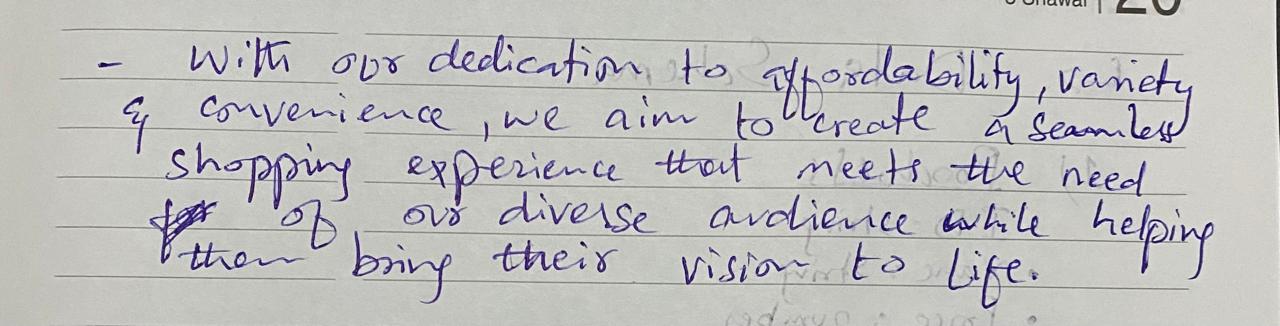 - With our dedication to affordability, variety
& convenience, we aim to create a seamless
shopping experience that meets the need
of our diverse audience while helping
them bring their vision to life.